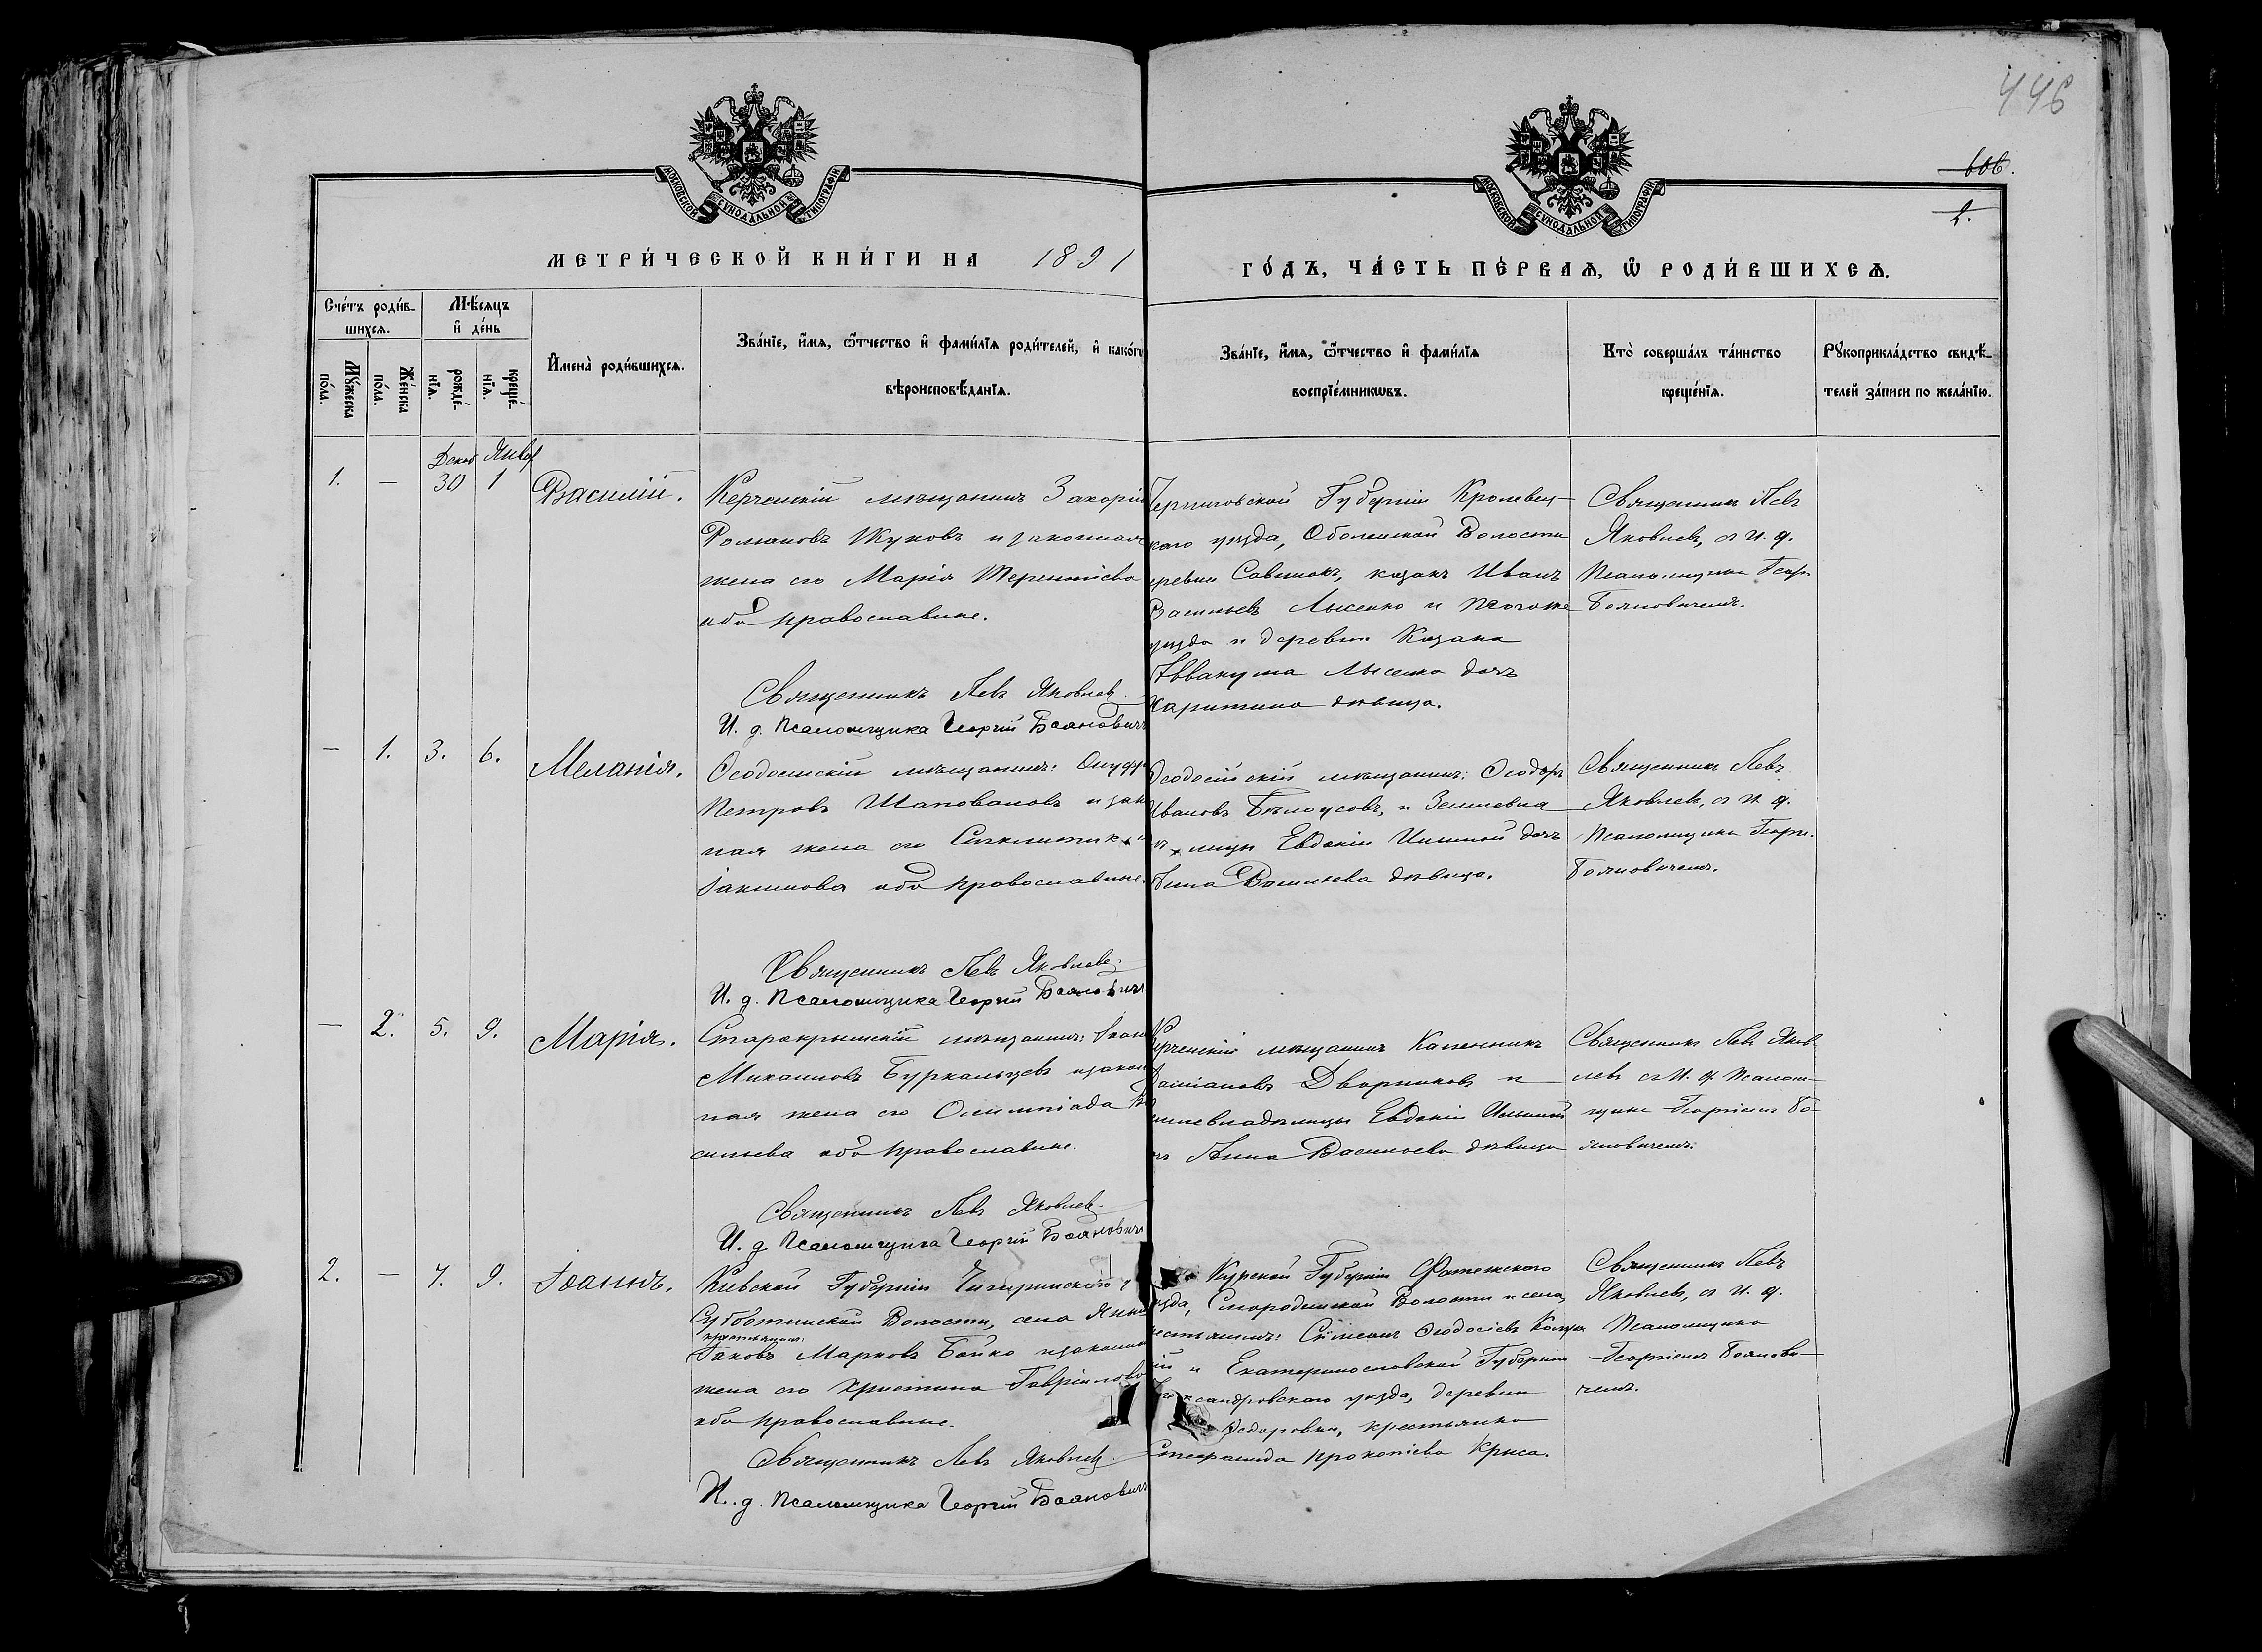 446
606.
2.
МОСКОВСКОЙ СѴНОДАЛЬНОЙ ТИПОГРАФІИ
МОСКОВСКОЙ СѴНОДАЛЬНОЙ ТИПОГРАФІИ
МЕТРИ́ЧЕСКОЙ КНИ́ГИ НА 1891
ГО́ДЪ, ЧА́СТЬ ПЕ́РВАѦ, Ѽ РОДИ́ВШИХСѦ.
Сче́тъ роди́в-
шихсѧ.
Мѣ́сѧцъ
и҆ де́нь
Мꙋ́жеска
по́ла.
Же́нска
по́ла.
рожде́-
нїѧ.
креще́-
нїѧ.
И҆мена̀ роди́вшихсѧ.
Зва́нїе, и҆́мѧ, ѻ҆́тчество и҆ фами́лїѧ роди́телей, и҆ како́гѡ
вѣроисповѣ́данїѧ.
Зва́нїе, и҆́мѧ, ѻ҆́тчество и҆ фами́лїѧ
воспрїе́мникѡвъ.
Кто̀ соверша́лъ та́инство
креще́нїѧ.
Рꙋкоприкла́дство свидѣ́-
телей за́писи по жела́нїю.
Декаб Январ
1. — 30 1 Василій.
Керченскій мѣщанинъ Захарій
Романовъ Жуковъ и законная
жена его Марія Терентіева
оба православные.
Священникъ Левъ Яковлевъ.
И. д. Псаломщика Георгій Бояновичъ
Черниговской Губерніи Кролевец-
каго уѣзда, Оболонской Волости
деревни Савинокъ, казакъ Иванъ
Васильевъ Лысенко и тогоже
уѣзда и деревни Казака
Аввакума Лысенко дочь
Харитина дѣвица.
Священникъ Левъ
Яковлевъ, съ и. д.
Псаломщика Георг.
Бояновичемъ.
— 1. 3. 6. Меланія.
Ѳеодосійскій мѣщанинъ: Онуфр
Петровъ Шаповаловъ и зак
ная жена его Синклитик
Іакимова оба православные.
Священникъ Левъ Яковлевъ.
И. д. Псаломщика Георгій Бояновичъ
Ѳеодосійскій мѣщанинъ: Ѳеодоръ
Ивановъ Бѣлоусовъ, и Землевла
лицы Евдокіи Ильиной дочь
Анна Васильева дѣвица.
Священникъ Левъ
Яковлевъ, съ и. д.
Псаломщика Георг.
Бояновичемъ.
— 2. 5. 9. Марія.
Старокрымскій мѣщанинъ: Іоан
Михаиловъ Буркальцевъ и закон
ная жена его Олимпіада Ва
сильева оба православные.
Священникъ Левъ Яковлевъ.
И. д. Псаломщика Георгій Бояновичъ
Керченскій мѣщанинъ Каленникъ
Даміановъ Дворниковъ и
землевладѣлицы Евдокіи Ильиной
чь Анна Васильева дѣвица
Священникъ Левъ Яков-
левъ съ и. д. Псалом-
щика Георгіемъ Бо-
яновичемъ.
2. — 7. 9. Іоаннъ.
Кіевской Губерніи Чигиринскаго у
Субботинской Волости, села Яны
крестьянинъ:
Іаковъ Марковъ Бойко и законная
жена его Христина Гавріилова
оба православные.
Священникъ Левъ Яковлевъ.
И. д. Псаломщика Георгій Бояновичъ
Курской Губерніи Фатежскаго
уѣзда, Смородинской Волости и села,
крестьянинъ: Сѵмеонъ Ѳеодосіевъ
и Екатеринославской Губерніи
Александровскаго уѣзда, деревни
Ѳедоровки, крестьянка
Стефанида Прокопіева Крыса.
Священникъ Левъ
Яковлевъ, съ и. д.
Псаломщика
Георгіемъ Боянови-
чемъ.